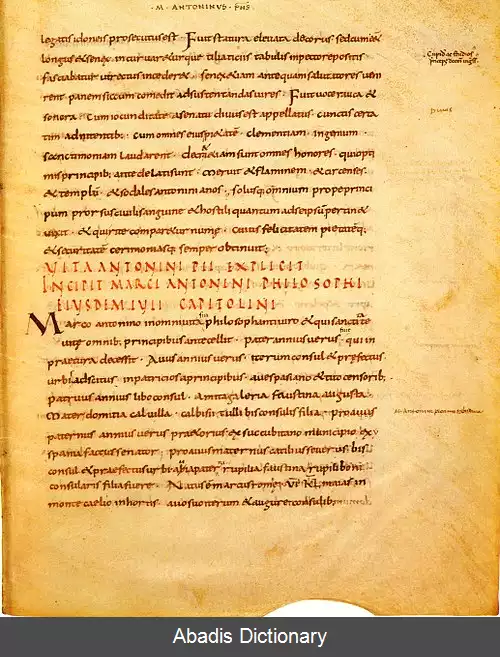 · M · ANTONINVS · PHS ·
legatis idoneis prosecutus est · Fuit statura elevata decorus · sed cum eẽ
longus & senex · incurvareturque tiliaciis tabulis in pectore positis
fasciabatur ut rectus incederet · senex etiam antequam salutatores veni
rent · panem siccum comedit ad sustentandas vires · Fuit voce rauca &
sonora · cum iocunditate · a senatu divus est appellatus · cunctis certa
tim adnitentib; cum omnes eius pietatẽ · clementiam · ingenium
sanctimoniam laudarent · decreti etiam sunt omnes honores · qui opti
mis principib; ante delati sunt · meruit & flaminem · & circenses ·
& templũ · & sodales antoninianos · solusq; omnium prope princi
pum prorsus civili sanguine & hostili quantum ad se ipsũ pertinet
vixit · & qui rite comparetur numae · cuius felicitatem pietatẽq;
& securitatẽ cerimoniasq; semper obtinuit;
VITA ANTONINI PII EXPLICIT
INCIPIT MARCI ANTONINI PHILOSOPHI
EIUSDEM IULII CAPITOLINI
Marco antonino in omni vita philosophanti viro & qui sanctitate
vitae omnib; principibus antecellit · pater annius verus · qui in
praetura decessit · Avus annius verus · iterum consul & praefectus
urbi · adscitus in patricios a principibus · a vespasiano & tito censorib;
patruus annius libo consul · amita galeria faustina augusta ·
Mater domitia calvilla · calbisi tulli bis consulis filia · proavus
paternus annius verus praetorius ex succubitano municipio ex hi
spania factus senator; proavus maternus catilius severus · bis
consul & praefectus urbi · avia paterna rupilia faustina rupili boni
consularis filia fuere · Natus est marcus romae · vi · Kl · maias in
monte caelio in hortis · avo suo iterum & augure consulib;
Divus
Abadis Dictionary